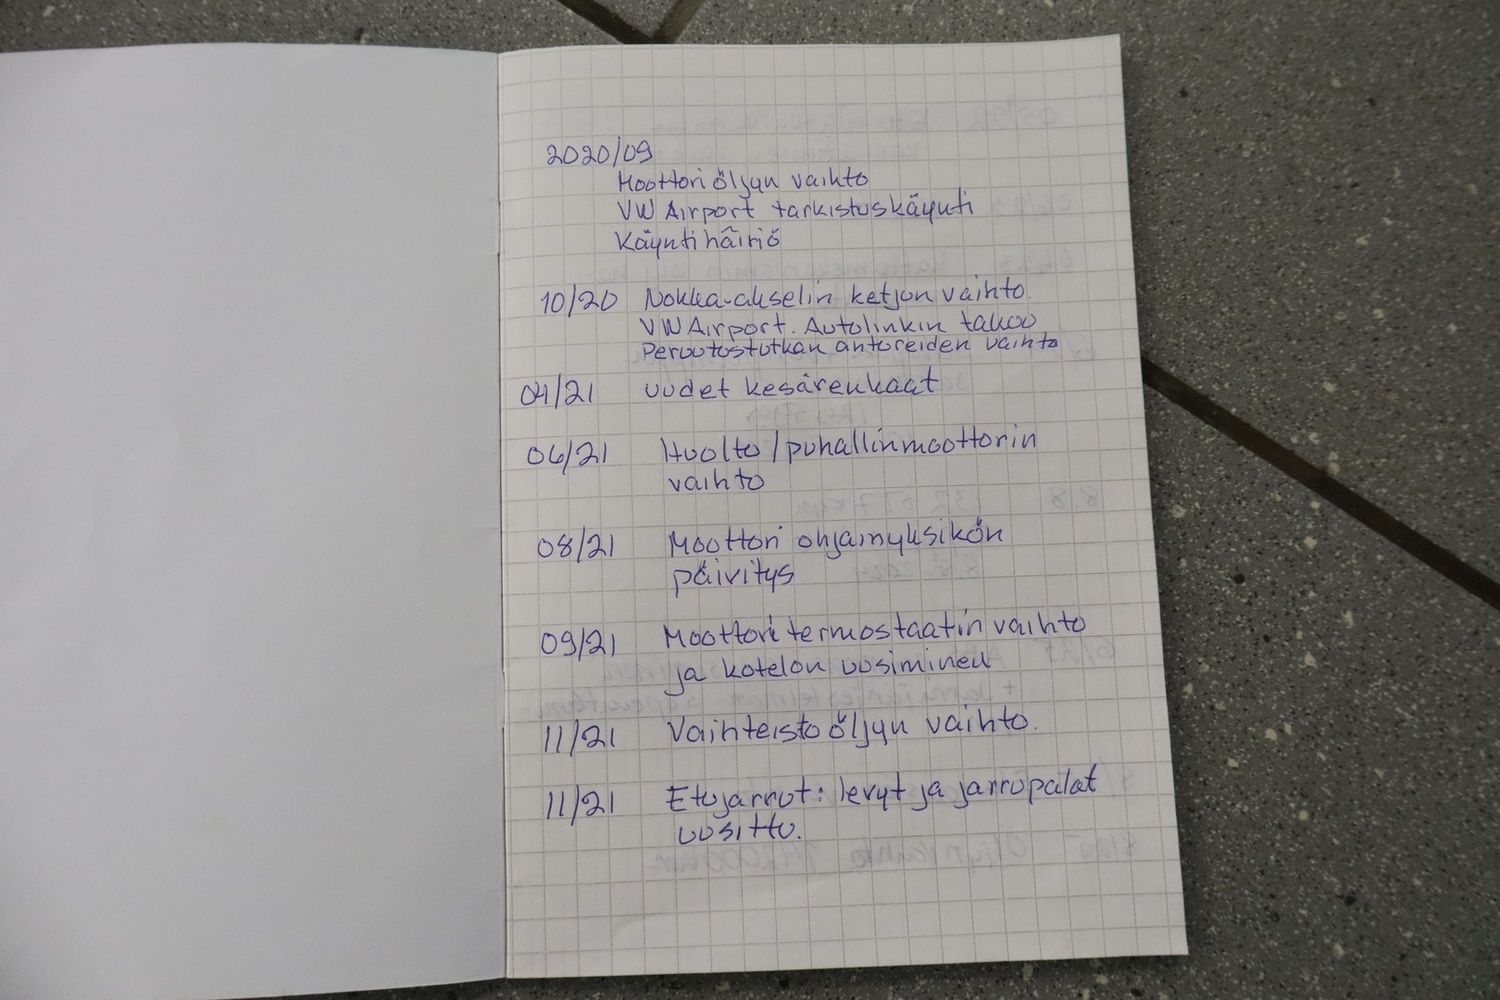 2020/09
Moottoriöljyn vaihto
VW Airport tarkistuskäynti
Käyntihäiriö
10/20 Nokka-akselin ketjun vaihto.
VW Airport. Autolinkin takuu
Peruutustutkan antureiden vaihto
04/21 uudet kesärenkaat
06/21 Huolto/puhallinmoottorin
vaihto
08/21 Moottori ohjainyksikön
päivitys
09/21 Moottori termostaatin vaihto
ja kotelon uusiminen
11/21 Vaihteistoöljyn vaihto.
11/21 Etujarrut: levyt ja jarrupalat
uusittu.